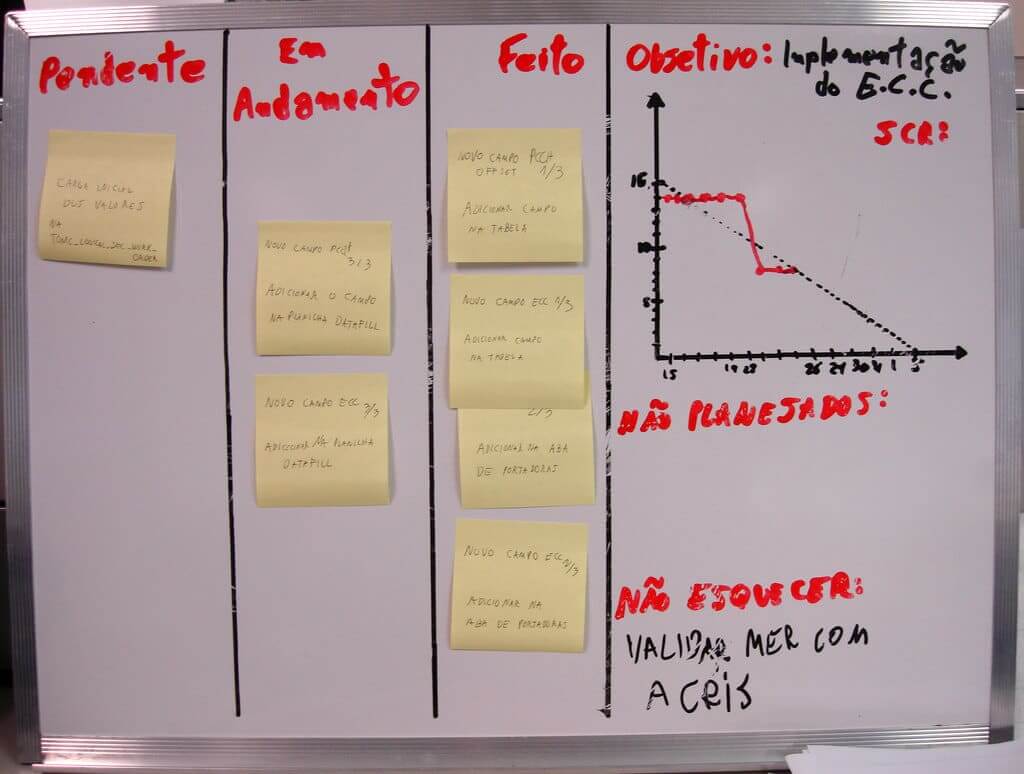 Pendente
CARGA INICIAL
DOS VALORES
NA
Em
Andamento
NOVO CAMPO
3/3
ADICIONAR O CAMPO
NA PLANILHA DATAFILL
NOVO CAMPO ECC 3/3
ADICIONAR NA PLANILHA
DATAFILL
Feito
NOVO CAMPO PCCH
OFFSET 1/3
ADICIONAR CAMPO
NA TABELA
NOVO CAMPO ECC 1/3
ADICIONAR CAMPO
NA TABELA
2/3
ADICIONAR NA ABA
DE PORTADORAS
NOVO CAMPO ECC 2/3
ADICIONAR NA
ABA DE PORTADORAS
Objetivo: Implementação
do E.C.C.
SCR:
15
10
5
15 19 23 26 29 30 1 5
NÃO PLANEJADOS:
NÃO ESQUECER:
VALIDAR MER COM
A CRIS